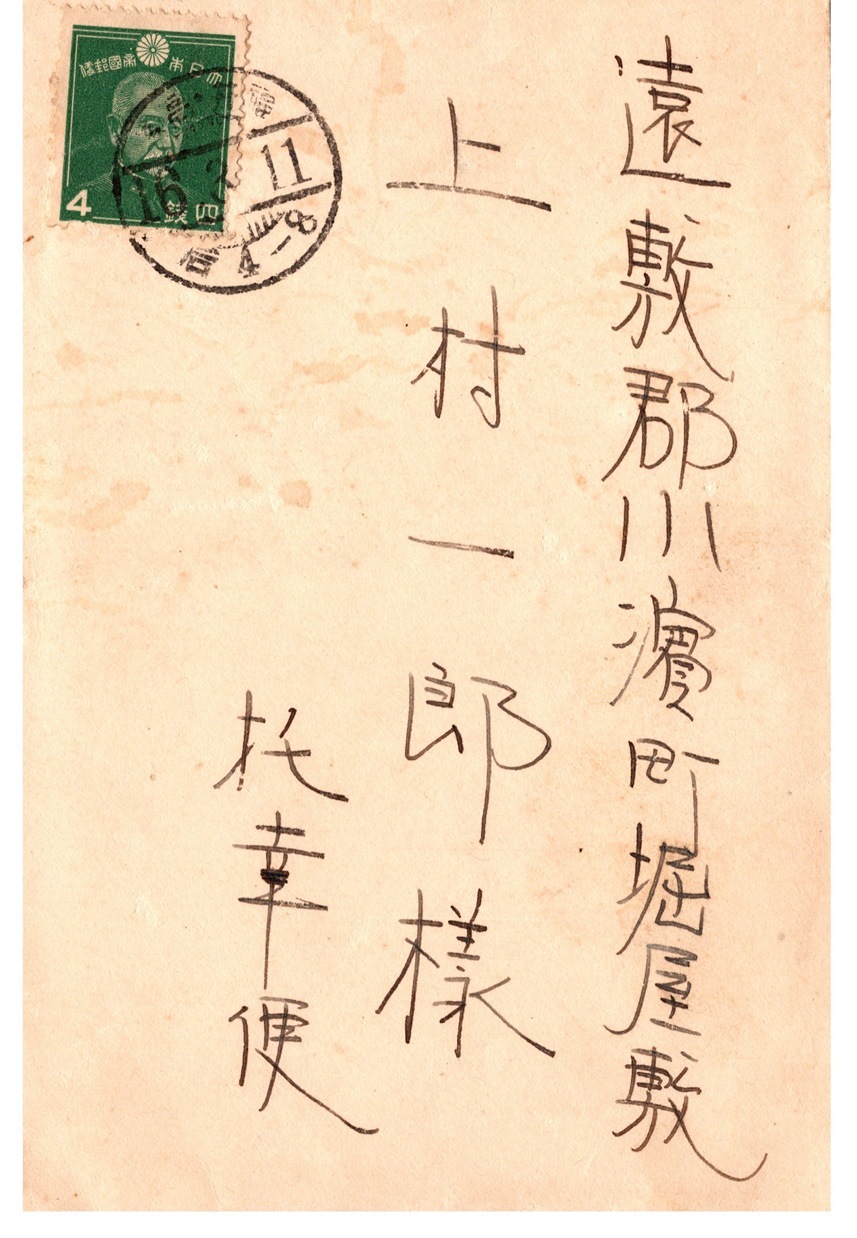 遠敷郡小濱町堀屋敷
上村一郎様
托幸便
大日本帝國郵便
4
四錢
16
11
8-